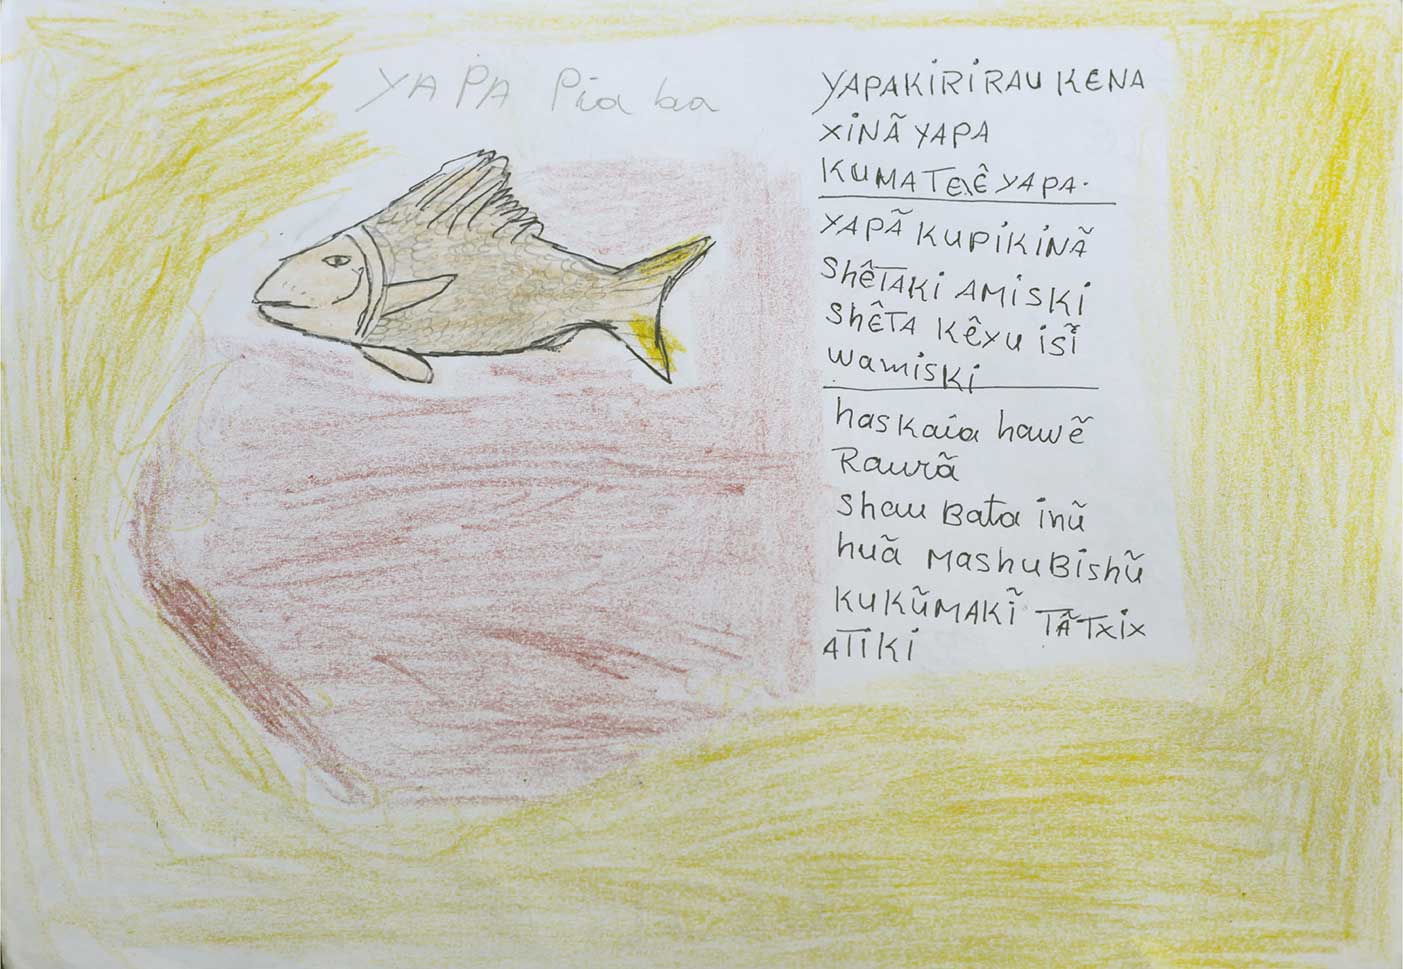 YAPA Piaba
YAPAKIRIRAU KENA
XINÃ YAPA
KUMA YAPA.
YAPÃ KUPIKINÃ
ShêTAKi AMiSKi
ShêTA Kêxu iSĨ
wamiski
haskaia hawẽ
Raurã
Shau Bata inũ
huã MashuBishũ
KUKŨMAKĨ TÃTxix
ATiKi